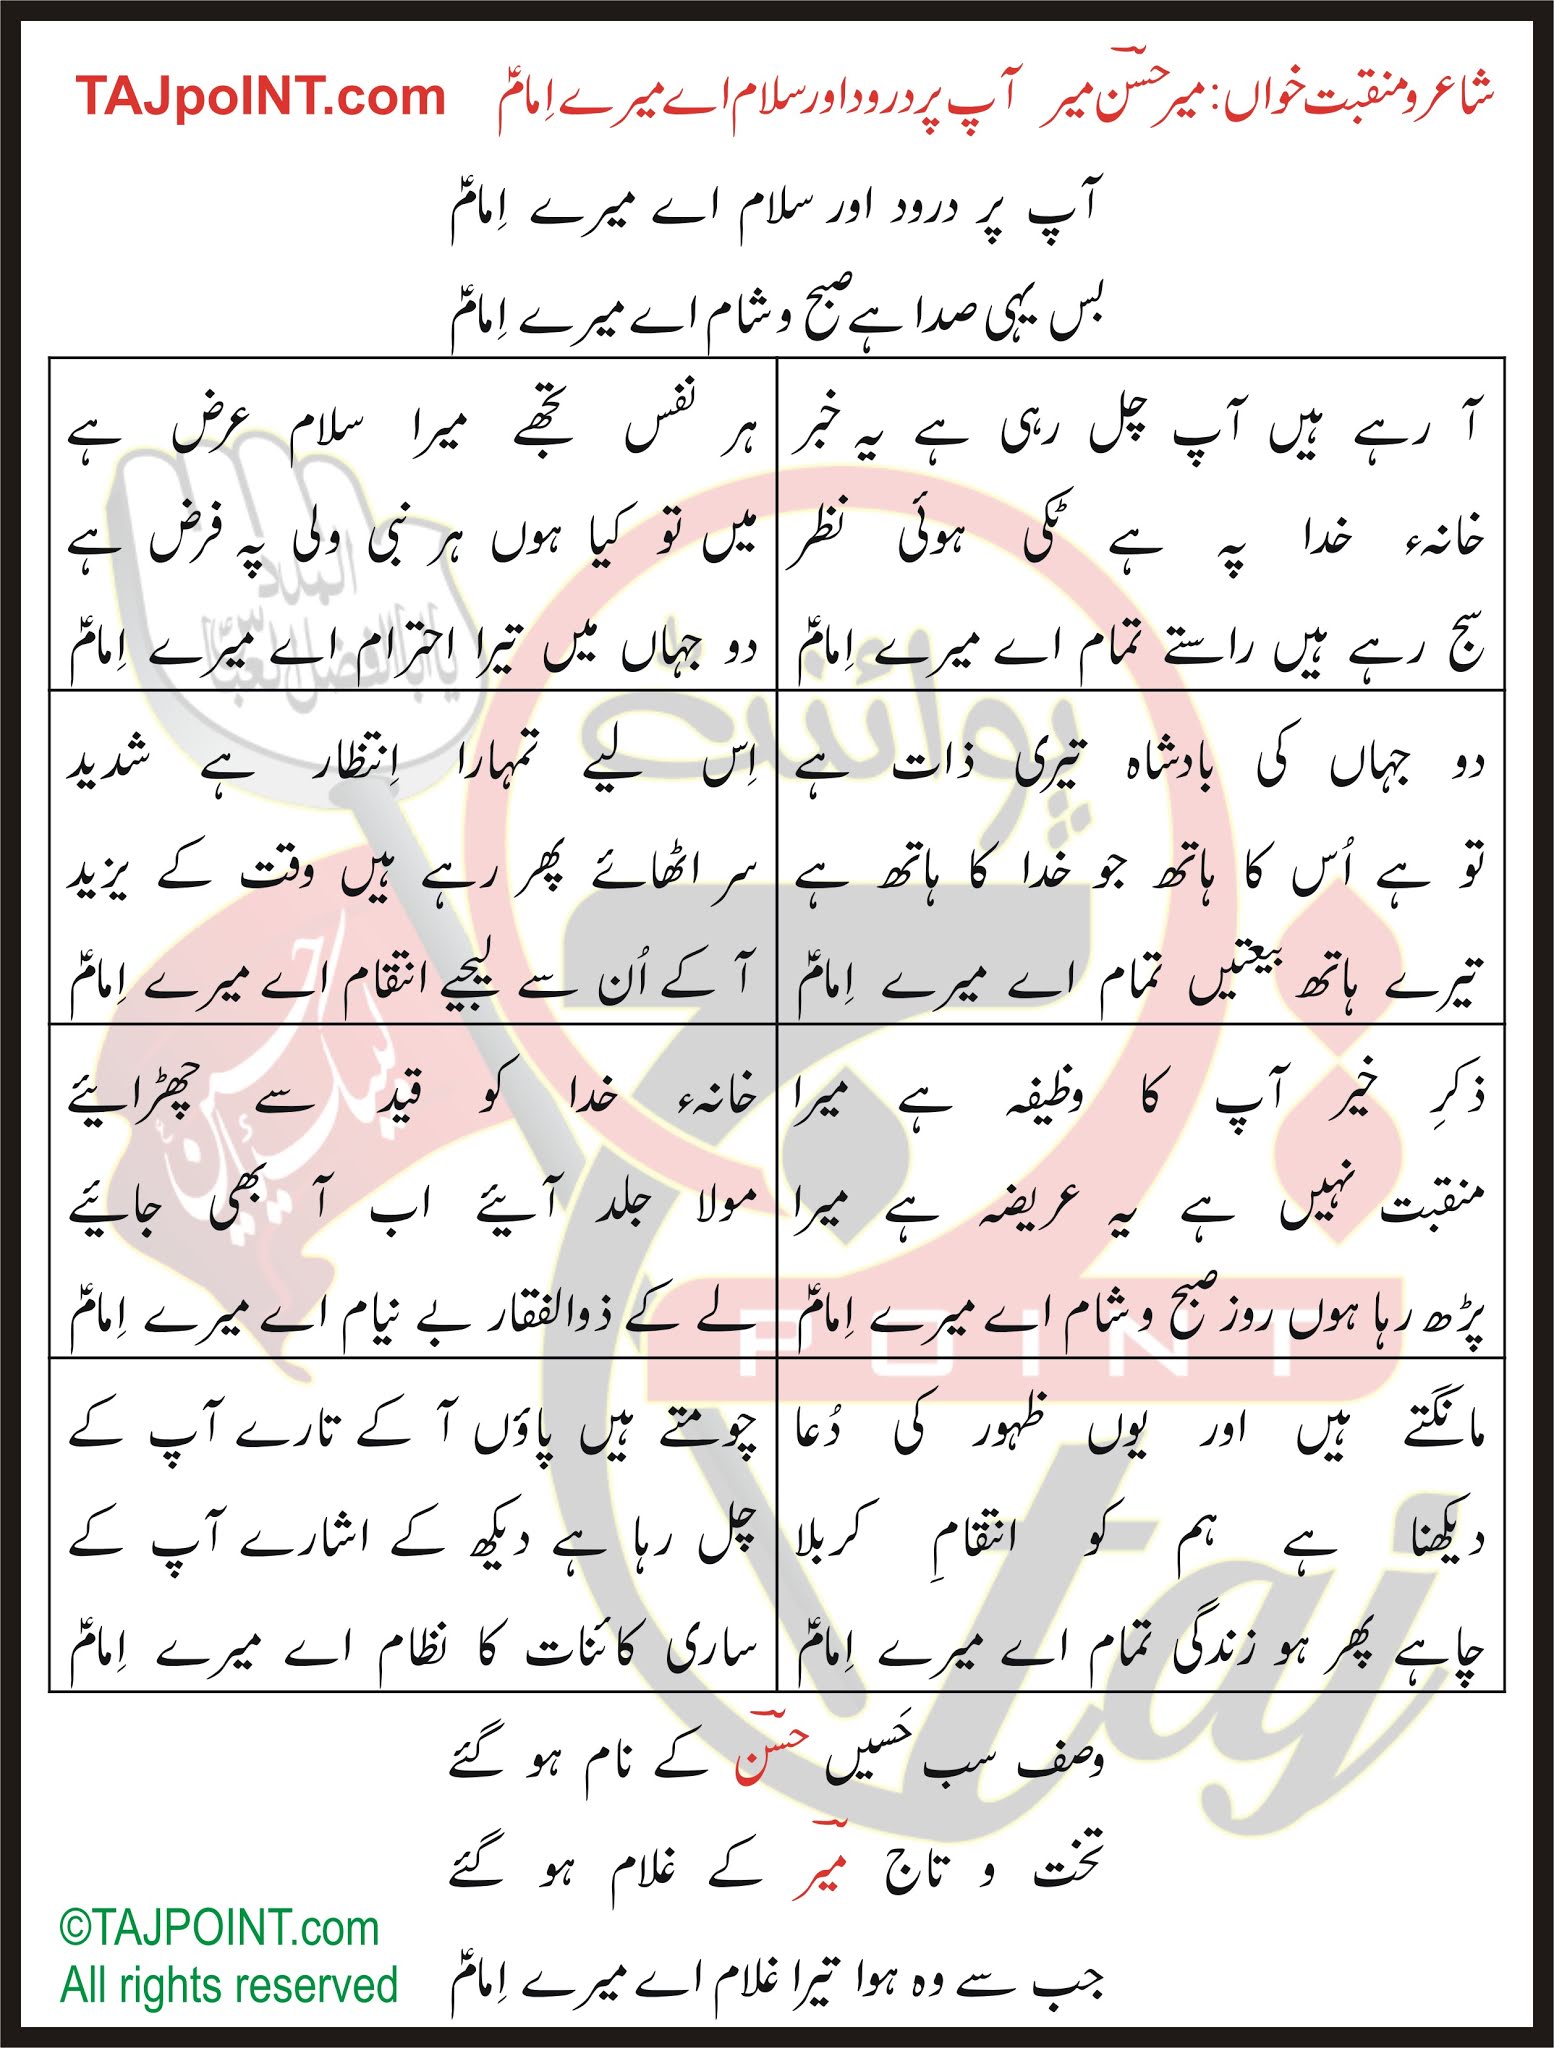 شاعر و منقبت خواں: میر حسنؔ میر آپ پر درود اور سلام اے میرے اِمامؑ TAJpoINT.com
آپ پر درود اور سلام اے میرے اِمامؑ
بس یہی صدا ہے صبح و شام اے میرے اِمامؑ
آ رہے ہیں آپ چل رہی ہے یہ خبر
خانہء خدا پہ ہے ٹکی ہوئی نظر
سج رہے ہیں راستے تمام اے میرے اِمامؑ
ہر نفس تجھے میرا سلام عرض ہے
میں تو کیا ہوں ہر نبی ولی پہ فرض ہے
دو جہاں میں تیرا احترام اے میرے اِمامؑ
دو جہاں کی بادشاہ تیری ذات ہے
تو ہے اُس کا ہاتھ جو خدا کا ہاتھ ہے
تیرے ہاتھ بیعتیں تمام اے میرے اِمامؑ
اِس لیے تمہارا اِنتظار ہے شدید
سر اٹھائے پھر رہے ہیں وقت کے یزید
آ کے اُن سے لیجیے انتقام اے میرے اِمامؑ
ذکرِ خیر آپ کا وظیفہ ہے میرا
منقبت نہیں ہے یہ عریضہ ہے میرا
پڑھ رہا ہوں روز صبح و شام اے میرے اِمامؑ
خانہء خدا کو قید سے چھڑائیے
مولا جلد آیئے اب آ بھی جایئے
لے کے ذوالفقار بے نیام اے میرے اِمامؑ
مانگتے ہیں اور یوں ظہور کی دُعا
دیکھنا ہے ہم کو انتقامِ کربلا
چاہے پھر ہو زندگی تمام اے میرے اِمامؑ
چومتے ہیں پاؤں آ کے تارے آپ کے
چل رہا ہے دیکھ کے اشارے آپ کے
ساری کائنات کا نظام اے میرے اِمامؑ
وصف سب حَسیں حسنؔ کے نام ہو گئے
تخت و تاج میرؔ کے غلام ہو گئے
جب سے وہ ہوا تیرا غلام اے میرے اِمامؑ
©TAJPOINT.com
All rights reserved
پوائنٹ
POINT
taj
یا ابالفضل العباس
لبیک یا حسین